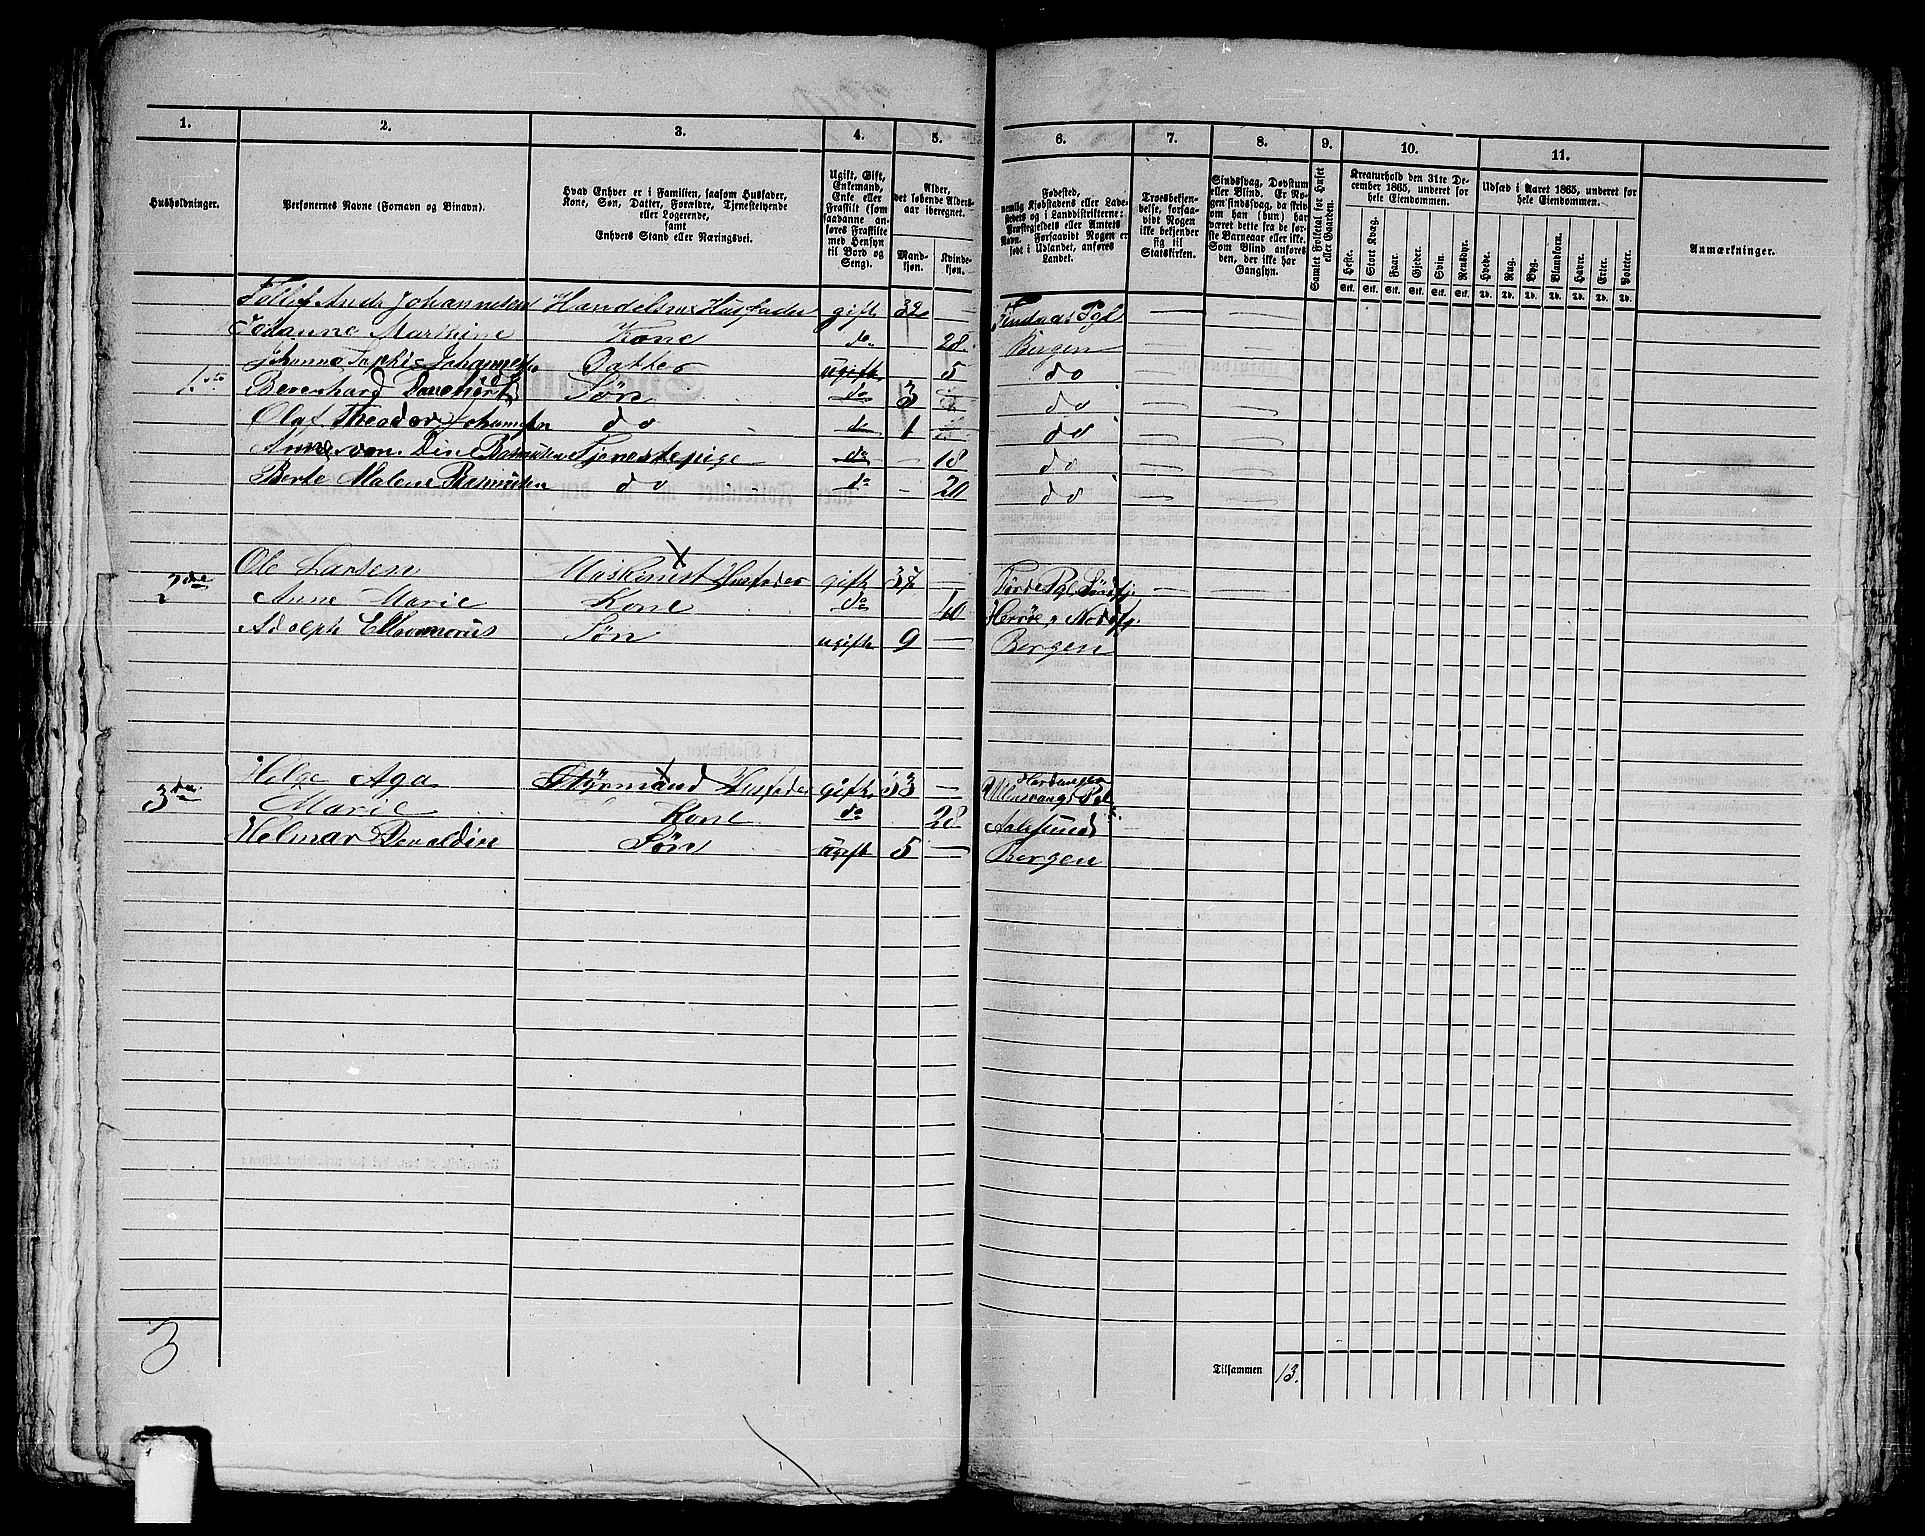 1. 2. 3. 4. 5. 6. 7. 8. 9. 10. 11.
Husholdninger.
Personernes Navne (Fornavn og Binavn).
Hvad Enhver er i Familien, saasom Husfader, Kone, Søn, Datter, Forældre, Tjenestetyende eller Logerende, samt Enhvers Stand eller Næringsvei.
Ugift, Gift, Enkemand, Enke eller Fraskilt (som saadanne anføres Fraskilte med Hensyn til Bord og Seng).
Alder, det løbende Aldersaar iberegnet.
Mandkjøn. Kvindekjøn.
Fødested, nemlig Kjøbstadens eller Ladestedets og i Landdistrikterne: Præstegjeldets eller Amtets Navn. Forsaavidt Nogen er født i Udlandet, anføres Landet.
Troesbekjendelse, forsaavidt Nogen ikke bekjender sig til Statskirken.
Sindssvag, Døvstum eller Blind. Er Nogen sindssvag, da skrives om han (hun) har været dette fra de første Barneaar eller ikke. Som Blind anføres den, der ikke har Gangsyn.
Samlet Folketal for Huset eller Gaarden.
Kreaturhold den 31te December 1865, underet for hele Eiendommen.
Heste. Stort Kvæg. Faar. Gjeder. Svin. Rensdyr.
Stk. Stk. Stk. Stk. Stk. Stk.
Udsæd i Aaret 1865, underet for hele Eiendommen.
Hvede. Rug. Byg. Blandkorn. Havre. Erter. Poteter.
Td. Td. Td. Td. Td. Td. Td.
Anmærkninger.
Johannesen Handelsm Husfader gift 32 Pgl
Johanne Marthine Kone do 28 Bergen
Johanne Sophie Johannesen Datter ugift 5 do
1ste Berenhard Søn do 3 do
Olaf Theodor Johannesen do do 1 do
Dine Rasmusen Tjenestepige do 18 do
Berte Malene Rasmusen do do 20 do
Ole Larsen Maskinist Husfader gift 37 Førde Pgl Søndfj
2den Anne Marie Kone do 40 Nordfj.
Adolph Søn ugift 9 Bergen
Helge Aga Styrmand Husfader gift 33 Hardanger Ullensvangs Pgl
3die Marie Kone do 28 Aalesund
Helmar Søn ugift 5 Bergen
3
Tilsammen 13.